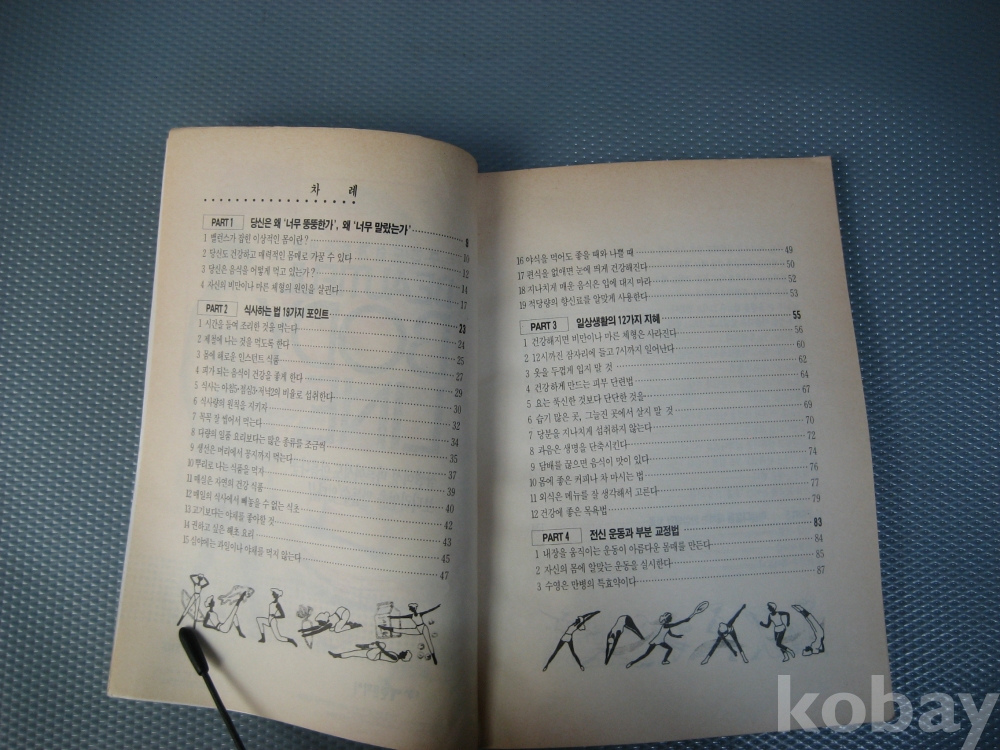 차 례
PART 1 당신은 왜 '너무 뚱뚱한가', 왜 '너무 말랐는가' 9
1 밸런스가 잡힌 이상적인 몸이란? 10
2 당신도 건강하고 매력적인 몸매로 가꿀 수 있다 12
3 당신은 음식을 어떻게 먹고 있는가? 14
4 자신의 비만이나 마른 체형의 원인을 살핀다 17
PART 2 식사하는 법 19가지 포인트 23
1 시간을 들여 조리한 것을 먹는다 24
2 제철에 나는 것을 먹도록 한다 25
3 몸에 해로운 인스턴트 식품 27
4 피가 되는 음식이 건강을 좋게 한다 29
5 식사는 아침3·점심3·저녁2의 비율로 섭취한다 30
6 식사량의 원칙을 지키자 32
7 꼭꼭 잘 씹어서 먹는다 34
8 다량의 일품 요리보다는 많은 종류를 조금씩 35
9 생선은 머리에서 꽁지까지 먹는다 37
10 뿌리로 나는 식품을 먹자 39
11 매실은 자연의 건강 식품 40
12 매일의 식사에서 빼놓을 수 없는 식초 42
13 고기보다는 야채를 좋아할 것 43
14 권하고 싶은 해초 요리 45
15 심야에는 과일이나 야채를 먹지 않는다 47
16 야식을 먹어도 좋을 때와 나쁠 때 49
17 편식을 없애면 눈에 띄게 건강해진다 50
18 지나치게 매운 음식은 입에 대지 마라 52
19 적당량의 향신료를 알맞게 사용한다 53
PART 3 일상생활의 12가지 지혜 55
1 건강해지면 비만이나 마른 체형은 사라진다 56
2 12시까진 잠자리에 들고 7시까지 일어난다 60
3 옷을 두껍게 입지 말 것 62
4 건강하게 만드는 피부 단련법 64
5 요는 푹신한 것보다 단단한 것을 67
6 습기 많은 곳, 그늘진 곳에서 살지 말 것 69
7 당분을 지나치게 섭취하지 않는다 70
8 과음은 생명을 단축시킨다 72
9 담배를 끊으면 음식이 맛이 있다 74
10 몸에 좋은 커피나 차 마시는 법 76
11 외식은 메뉴를 잘 생각해서 고른다 77
12 건강에 좋은 목욕법 79
PART 4 전신 운동과 부분 교정법 83
1 내장을 움직이는 운동이 아름다운 몸매를 만든다 84
2 자신의 몸에 알맞는 운동을 실시한다 85
3 수영은 만병의 특효약이다 87
kobay